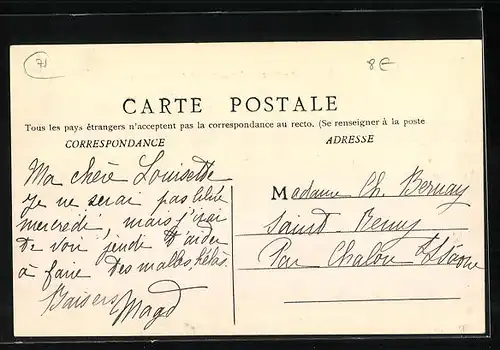 71
8€
CARTE POSTALE
Tous les pays étrangers n'acceptent pas la correspondance au recto. (Se renseigner à la poste
CORRESPONDANCE
ADRESSE
Ma chère Louisette
je ne serai pas libre
mercredi, mais j'irai
te voir jeudi t'aider
à faire des malles, hélas.
Baisers Magd
Madame Ch. Bernay
Saint Remy
Par Chalon s/Saône